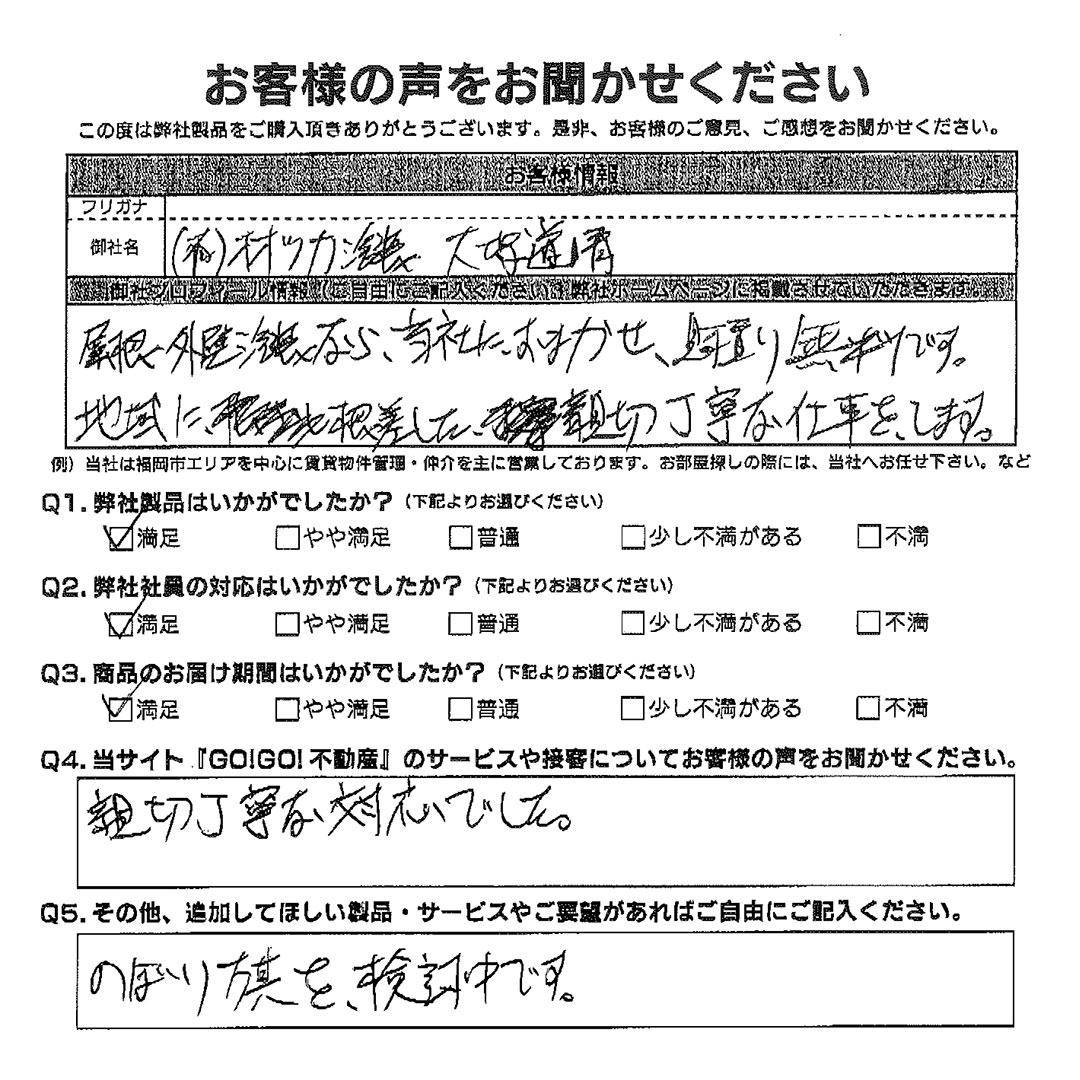 お客様の声をお聞かせください
この度は弊社製品をご購入頂きありがとうございます。是非、お客様のご意見、ご感想をお聞かせください。
お客様情報
フリガナ
御社名 (有)村ツカ塗装
御社プロフィール情報(ご自由にご記入ください!弊社ホームページに掲載させていただきます。)
屋根・外壁塗装なら、当社に、おまかせ、見積り無料です。
地域に、根差した、親切丁寧な仕事を、します。
例)当社は福岡市エリアを中心に賃貸物件管理・仲介を主に営業しております。お部屋探しの際には、当社へお任せ下さい。など
Q1.弊社製品はいかがでしたか?(下記よりお選びください)
☑満足 □やや満足 □普通 □少し不満がある □不満
Q2.弊社社員の対応はいかがでしたか?(下記よりお選びください)
☑満足 □やや満足 □普通 □少し不満がある □不満
Q3.商品のお届け期間はいかがでしたか?(下記よりお選びください)
☑満足 □やや満足 □普通 □少し不満がある □不満
Q4.当サイト『GO!GO!不動産』のサービスや接客についてお客様の声をお聞かせください。
親切丁寧な対応でした。
Q5.その他、追加してほしい製品・サービスやご要望があればご自由にご記入ください。
のぼり旗を、検討中です。